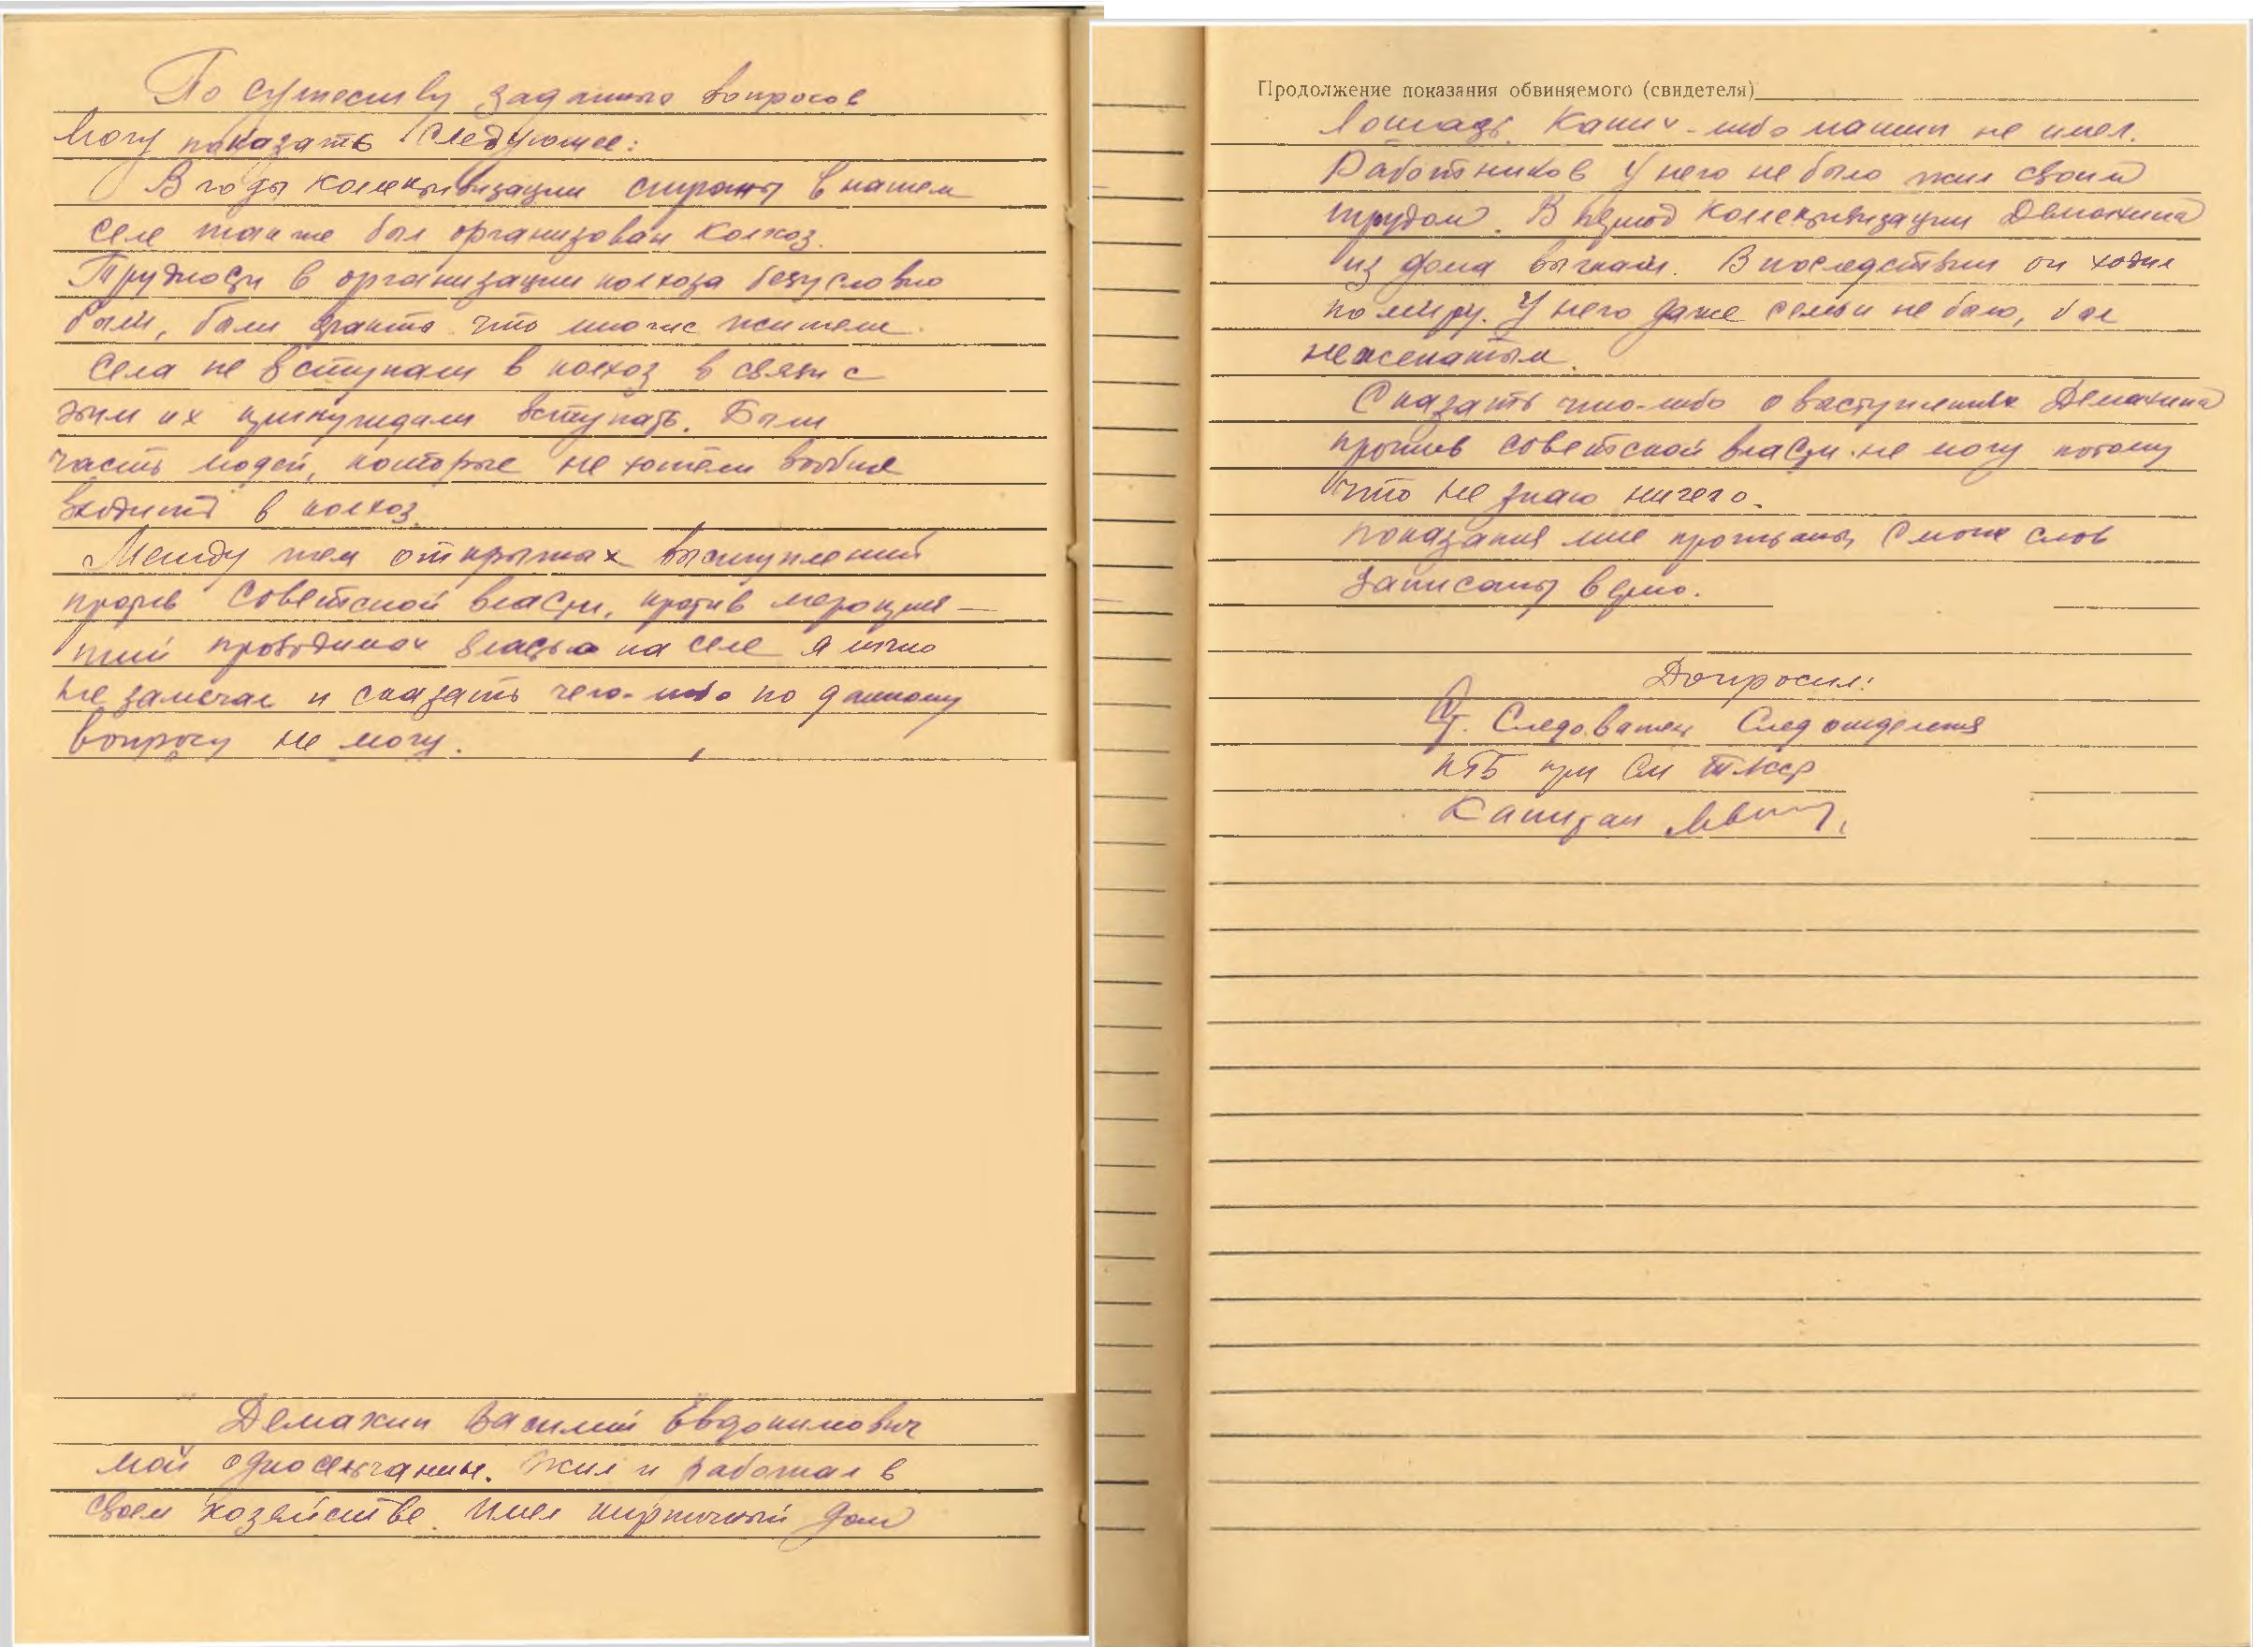 По существу заданных вопросов
могу показать следующее:
В годы колективизации страны в нашем
селе также был организован колхоз.
Трудности в организации колхоза безусловно
были, были факты что многие жители
села не вступали в колхоз в связи с
этим их принуждали вступать. Были
часть людей, которые не хотели вообще
входить в колхоз.
Между тем открытых выступлений
против советской власти, против мероприя-
тий проводимых властью на селе я лично
не замечал и сказать чего-либо по данному
вопросу не могу.
Демахин Василий Евдокимович
мой односельчанин. Жил и работал в
своем хозяйстве. Имел кирпичный дом
Продолжение показания обвиняемого (свидетеля)
лошадь. Каких-либо машин не имел.
Работников у него не было жил своим
трудом. В период колективизации Демахина
из дома выгнали. В последствии он ходил
по миру. У него даже семьи не было, был
неженатым.
Сказать что-либо о выступлениях Демахина
против советской власти не могу потому
что не знаю ничего.
Показания мне прочитаны, с моих слов
записаны верно.
Допросил:
Ст. Следователь Следотделения
КГБ при См
Капитан